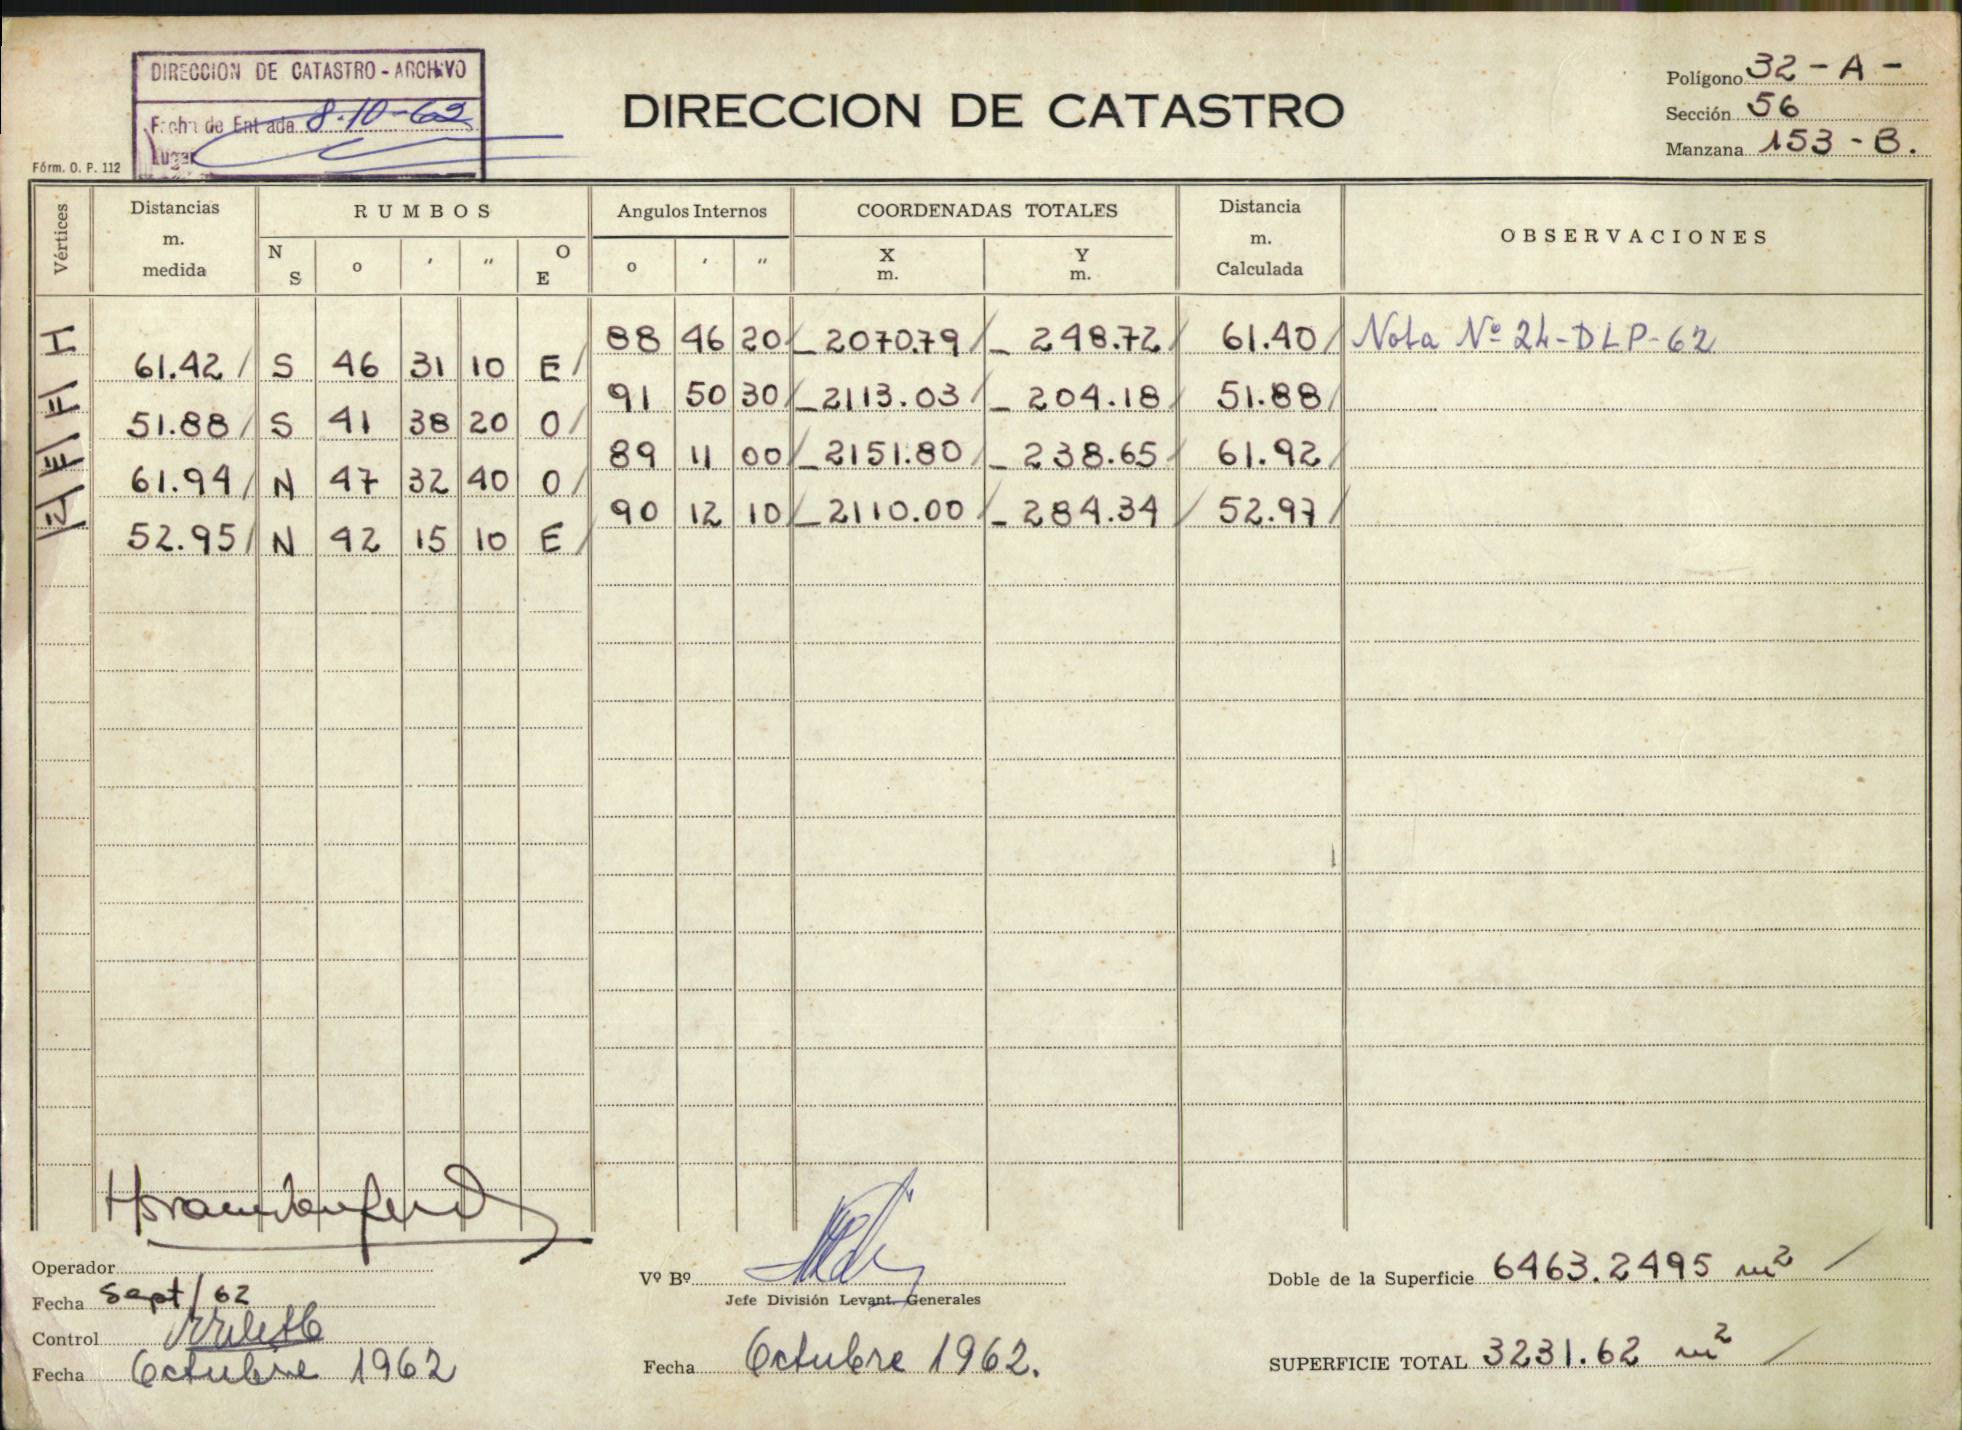 DIRECCION DE CATASTRO - ARCHIVO
Fecha de Entrada 8-10-62
Lugar
Fórm. O. P. 112
DIRECCION DE CATASTRO
Polígono 32 - A -
Sección 56
Manzana 153 - B.
Vértices
Distancias m. medida
RUMBOS
N S o ' " O E
Angulos Internos
o ' "
COORDENADAS TOTALES
X m. Y m.
Distancia m. Calculada
OBSERVACIONES
I 88 46 20 / - 2070.79 / - 248.72 / 61.40 / Nota Nº 24-DLP-62
61.42 / S 46 31 10 E /
II 91 50 30 / - 2113.03 / - 204.18 / 51.88 /
51.88 / S 41 38 20 O /
III 89 11 00 / - 2151.80 / - 238.65 / 61.92 /
61.94 / N 47 32 40 O /
IV 90 12 10 / - 2110.00 / - 284.34 / 52.97 /
52.95 / N 42 15 10 E /
Operador
Fecha Sept/62
Control
Fecha Octubre 1962
Vº Bº
Jefe División Levant. Generales
Fecha Octubre 1962.
Doble de la Superficie 6463.2495 m² /
SUPERFICIE TOTAL 3231.62 m² /